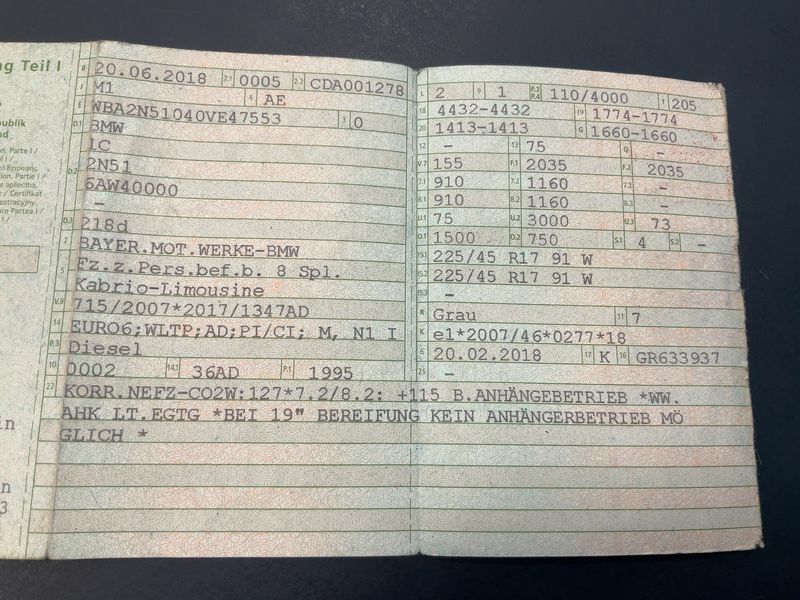 ng Teil I
publik
nd
B 20.06.2018 2.1 0005 2.2 CDA001278
J M1 4 AE
E WBA2N51040VE47553 3 0
D.1 BMW
1C
D.2 2N51
6AW40000
-
D.3 218d
2 BAYER.MOT.WERKE-BMW
5 Fz.z.Pers.bef.b. 8 Spl.
Kabrio-Limousine
V.9 715/2007*2017/1347AD
14 EURO6;WLTP;AD;PI/CI; M, N1 I
P.3 Diesel
10 0002 14.1 36AD P.1 1995
L 2 9 1 P.2 P.4 110/4000 T 205
18 4432-4432 19 1774-1774
20 1413-1413 G 1660-1660
12 - 13 75 Q -
V.7 155 F.1 2035 F.2 2035
7.1 910 7.2 1160 7.3 -
8.1 910 8.2 1160 8.3 -
U.1 75 U.2 3000 U.3 73
O.1 1500 O.2 750 S.1 4 S.2 -
15.1 225/45 R17 91 W
15.2 225/45 R17 91 W
15.3 -
R Grau 11 7
K e1*2007/46*0277*18
6 20.02.2018 17 K 16 GR633937
21 -
22 KORR.NEFZ-CO2W:127*7.2/8.2: +115 B.ANHÄNGEBETRIEB *WW.
AHK LT.EGTG *BEI 19" BEREIFUNG KEIN ANHÄNGERBETRIEB MÖ
GLICH *
in
n
3